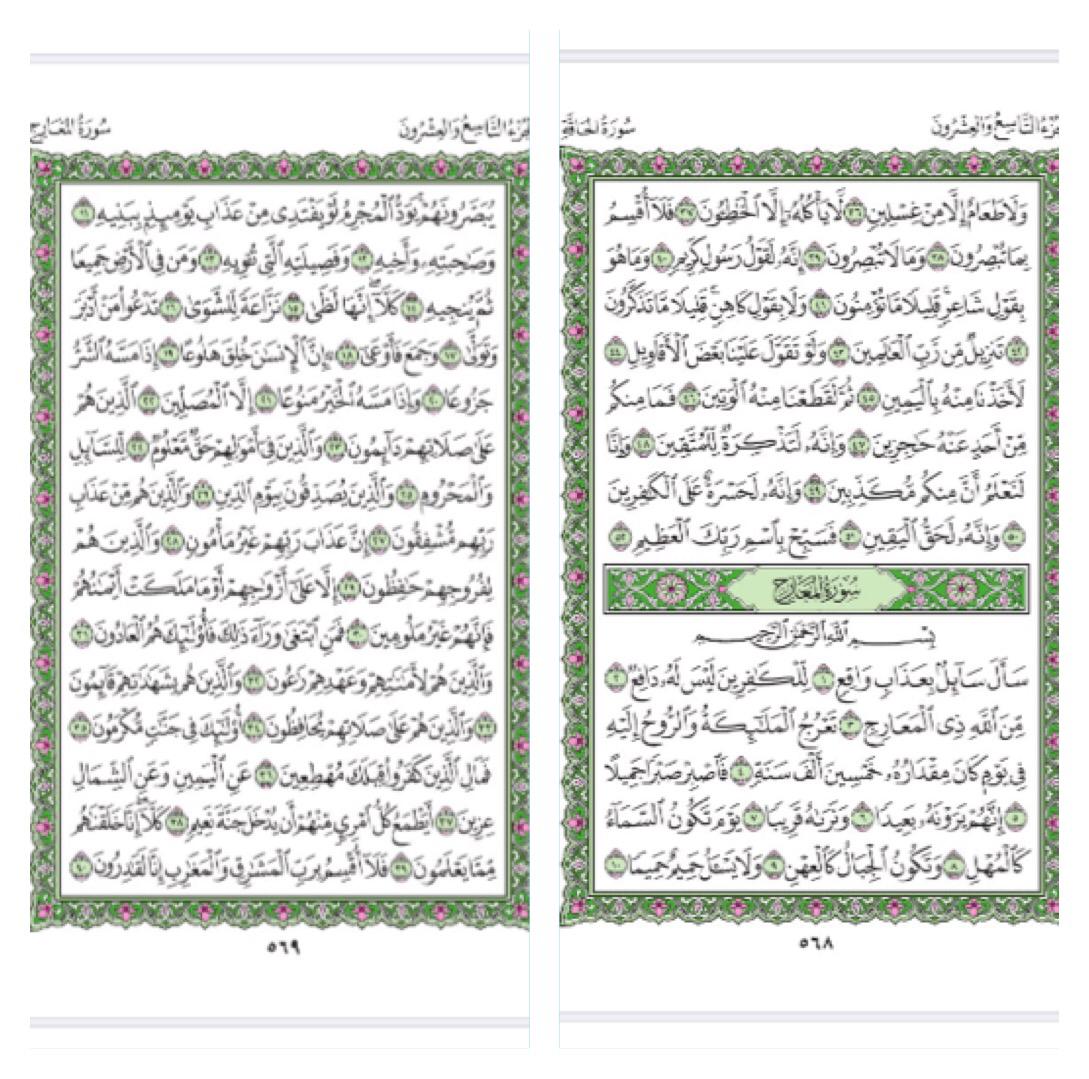 الجزء التاسع والعشرون
سورة الحاقة
وَلَا طَعَامٌ إِلَّا مِنْ غِسْلِينٍ ٣٦ لَّا يَأْكُلُهُۥٓ إِلَّا ٱلْخَٰطِـُٔونَ ٣٧ فَلَآ أُقْسِمُ
بِمَا تُبْصِرُونَ ٣٨ وَمَا لَا تُبْصِرُونَ ٣٩ إِنَّهُۥ لَقَوْلُ رَسُولٍ كَرِيمٍ ٤٠ وَمَا هُوَ
بِقَوْلِ شَاعِرٍ قَلِيلًا مَّا تُؤْمِنُونَ ٤١ وَلَا بِقَوْلِ كَاهِنٍ قَلِيلًا مَّا تَذَكَّرُونَ
٤٢ تَنزِيلٌ مِّن رَّبِّ ٱلْعَٰلَمِينَ ٤٣ وَلَوْ تَقَوَّلَ عَلَيْنَا بَعْضَ ٱلْأَقَاوِيلِ ٤٤
لَأَخَذْنَا مِنْهُ بِٱلْيَمِينِ ٤٥ ثُمَّ لَقَطَعْنَا مِنْهُ ٱلْوَتِينَ ٤٦ فَمَا مِنكُم
مِّنْ أَحَدٍ عَنْهُ حَٰجِزِينَ ٤٧ وَإِنَّهُۥ لَتَذْكِرَةٌ لِّلْمُتَّقِينَ ٤٨ وَإِنَّا
لَنَعْلَمُ أَنَّ مِنكُم مُّكَذِّبِينَ ٤٩ وَإِنَّهُۥ لَحَسْرَةٌ عَلَى ٱلْكَٰفِرِينَ
٥٠ وَإِنَّهُۥ لَحَقُّ ٱلْيَقِينِ ٥١ فَسَبِّحْ بِٱسْمِ رَبِّكَ ٱلْعَظِيمِ ٥٢
سُورَةُ المَعَارِجِ
بِسْمِ ٱللَّهِ ٱلرَّحْمَٰنِ ٱلرَّحِيمِ
سَأَلَ سَآئِلٌۢ بِعَذَابٍ وَاقِعٍ ١ لِّلْكَٰفِرِينَ لَيْسَ لَهُۥ دَافِعٌ ٢
مِّنَ ٱللَّهِ ذِى ٱلْمَعَارِجِ ٣ تَعْرُجُ ٱلْمَلَٰٓئِكَةُ وَٱلرُّوحُ إِلَيْهِ
فِى يَوْمٍ كَانَ مِقْدَارُهُۥ خَمْسِينَ أَلْفَ سَنَةٍ ٤ فَٱصْبِرْ صَبْرًا جَمِيلًا
٥ إِنَّهُمْ يَرَوْنَهُۥ بَعِيدًا ٦ وَنَرَىٰهُ قَرِيبًا ٧ يَوْمَ تَكُونُ ٱلسَّمَآءُ
كَٱلْمُهْلِ ٨ وَتَكُونُ ٱلْجِبَالُ كَٱلْعِهْنِ ٩ وَلَا يَسْـَٔلُ حَمِيمٌ حَمِيمًا ١٠
٥٦٨
الجزء التاسع والعشرون
سورة المعارج
يُبَصَّرُونَهُمْ يَوَدُّ ٱلْمُجْرِمُ لَوْ يَفْتَدِى مِنْ عَذَابِ يَوْمِئِذٍۭ بِبَنِيهِ ١١
وَصَٰحِبَتِهِۦ وَأَخِيهِ ١٢ وَفَصِيلَتِهِ ٱلَّتِى تُـْٔوِيهِ ١٣ وَمَن فِى ٱلْأَرْضِ جَمِيعًا
ثُمَّ يُنجِيهِ ١٤ كَلَّآ إِنَّهَا لَظَىٰ ١٥ نَزَّاعَةً لِّلشَّوَىٰ ١٦ تَدْعُوا۟ مَنْ أَدْبَرَ
وَتَوَلَّىٰ ١٧ وَجَمَعَ فَأَوْعَىٰٓ ١٨ ۞ إِنَّ ٱلْإِنسَٰنَ خُلِقَ هَلُوعًا ١٩ إِذَا مَسَّهُ ٱلشَّرُّ
جَزُوعًا ٢٠ وَإِذَا مَسَّهُ ٱلْخَيْرُ مَنُوعًا ٢١ إِلَّا ٱلْمُصَلِّينَ ٢٢ ٱلَّذِينَ هُمْ
عَلَىٰ صَلَاتِهِمْ دَآئِمُونَ ٢٣ وَٱلَّذِينَ فِىٓ أَمْوَٰلِهِمْ حَقٌّ مَّعْلُومٌ ٢٤ لِّلسَّآئِلِ
وَٱلْمَحْرُومِ ٢٥ وَٱلَّذِينَ يُصَدِّقُونَ بِيَوْمِ ٱلدِّينِ ٢٦ وَٱلَّذِينَ هُم مِّنْ عَذَابِ
رَبِّهِم مُّشْفِقُونَ ٢٧ إِنَّ عَذَابَ رَبِّهِمْ غَيْرُ مَأْمُونٍ ٢٨ وَٱلَّذِينَ هُمْ
لِفُرُوجِهِمْ حَٰفِظُونَ ٢٩ إِلَّا عَلَىٰٓ أَزْوَٰجِهِمْ أَوْ مَا مَلَكَتْ أَيْمَٰنُهُمْ
فَإِنَّهُمْ غَيْرُ مَلُومِينَ ٣٠ فَمَنِ ٱبْتَغَىٰ وَرَآءَ ذَٰلِكَ فَأُو۟لَٰٓئِكَ هُمُ ٱلْعَادُونَ ٣١
وَٱلَّذِينَ هُمْ لِأَمَٰنَٰتِهِمْ وَعَهْدِهِمْ رَٰعُونَ ٣٢ وَٱلَّذِينَ هُم بِشَهَٰدَٰتِهِمْ قَآئِمُونَ
٣٣ وَٱلَّذِينَ هُمْ عَلَىٰ صَلَاتِهِمْ يُحَافِظُونَ ٣٤ أُو۟لَٰٓئِكَ فِى جَنَّٰتٍ مُّكْرَمُونَ ٣٥
فَمَالِ ٱلَّذِينَ كَفَرُوا۟ قِبَلَكَ مُهْطِعِينَ ٣٦ عَنِ ٱلْيَمِينِ وَعَنِ ٱلشِّمَالِ
عِزِينَ ٣٧ أَيَطْمَعُ كُلُّ ٱمْرِئٍ مِّنْهُمْ أَن يُدْخَلَ جَنَّةَ نَعِيمٍ ٣٨ كَلَّآ إِنَّا خَلَقْنَٰهُم
مِّمَّا يَعْلَمُونَ ٣٩ فَلَآ أُقْسِمُ بِرَبِّ ٱلْمَشَٰرِقِ وَٱلْمَغَٰرِبِ إِنَّا لَقَٰدِرُونَ ٤٠
٥٦٩